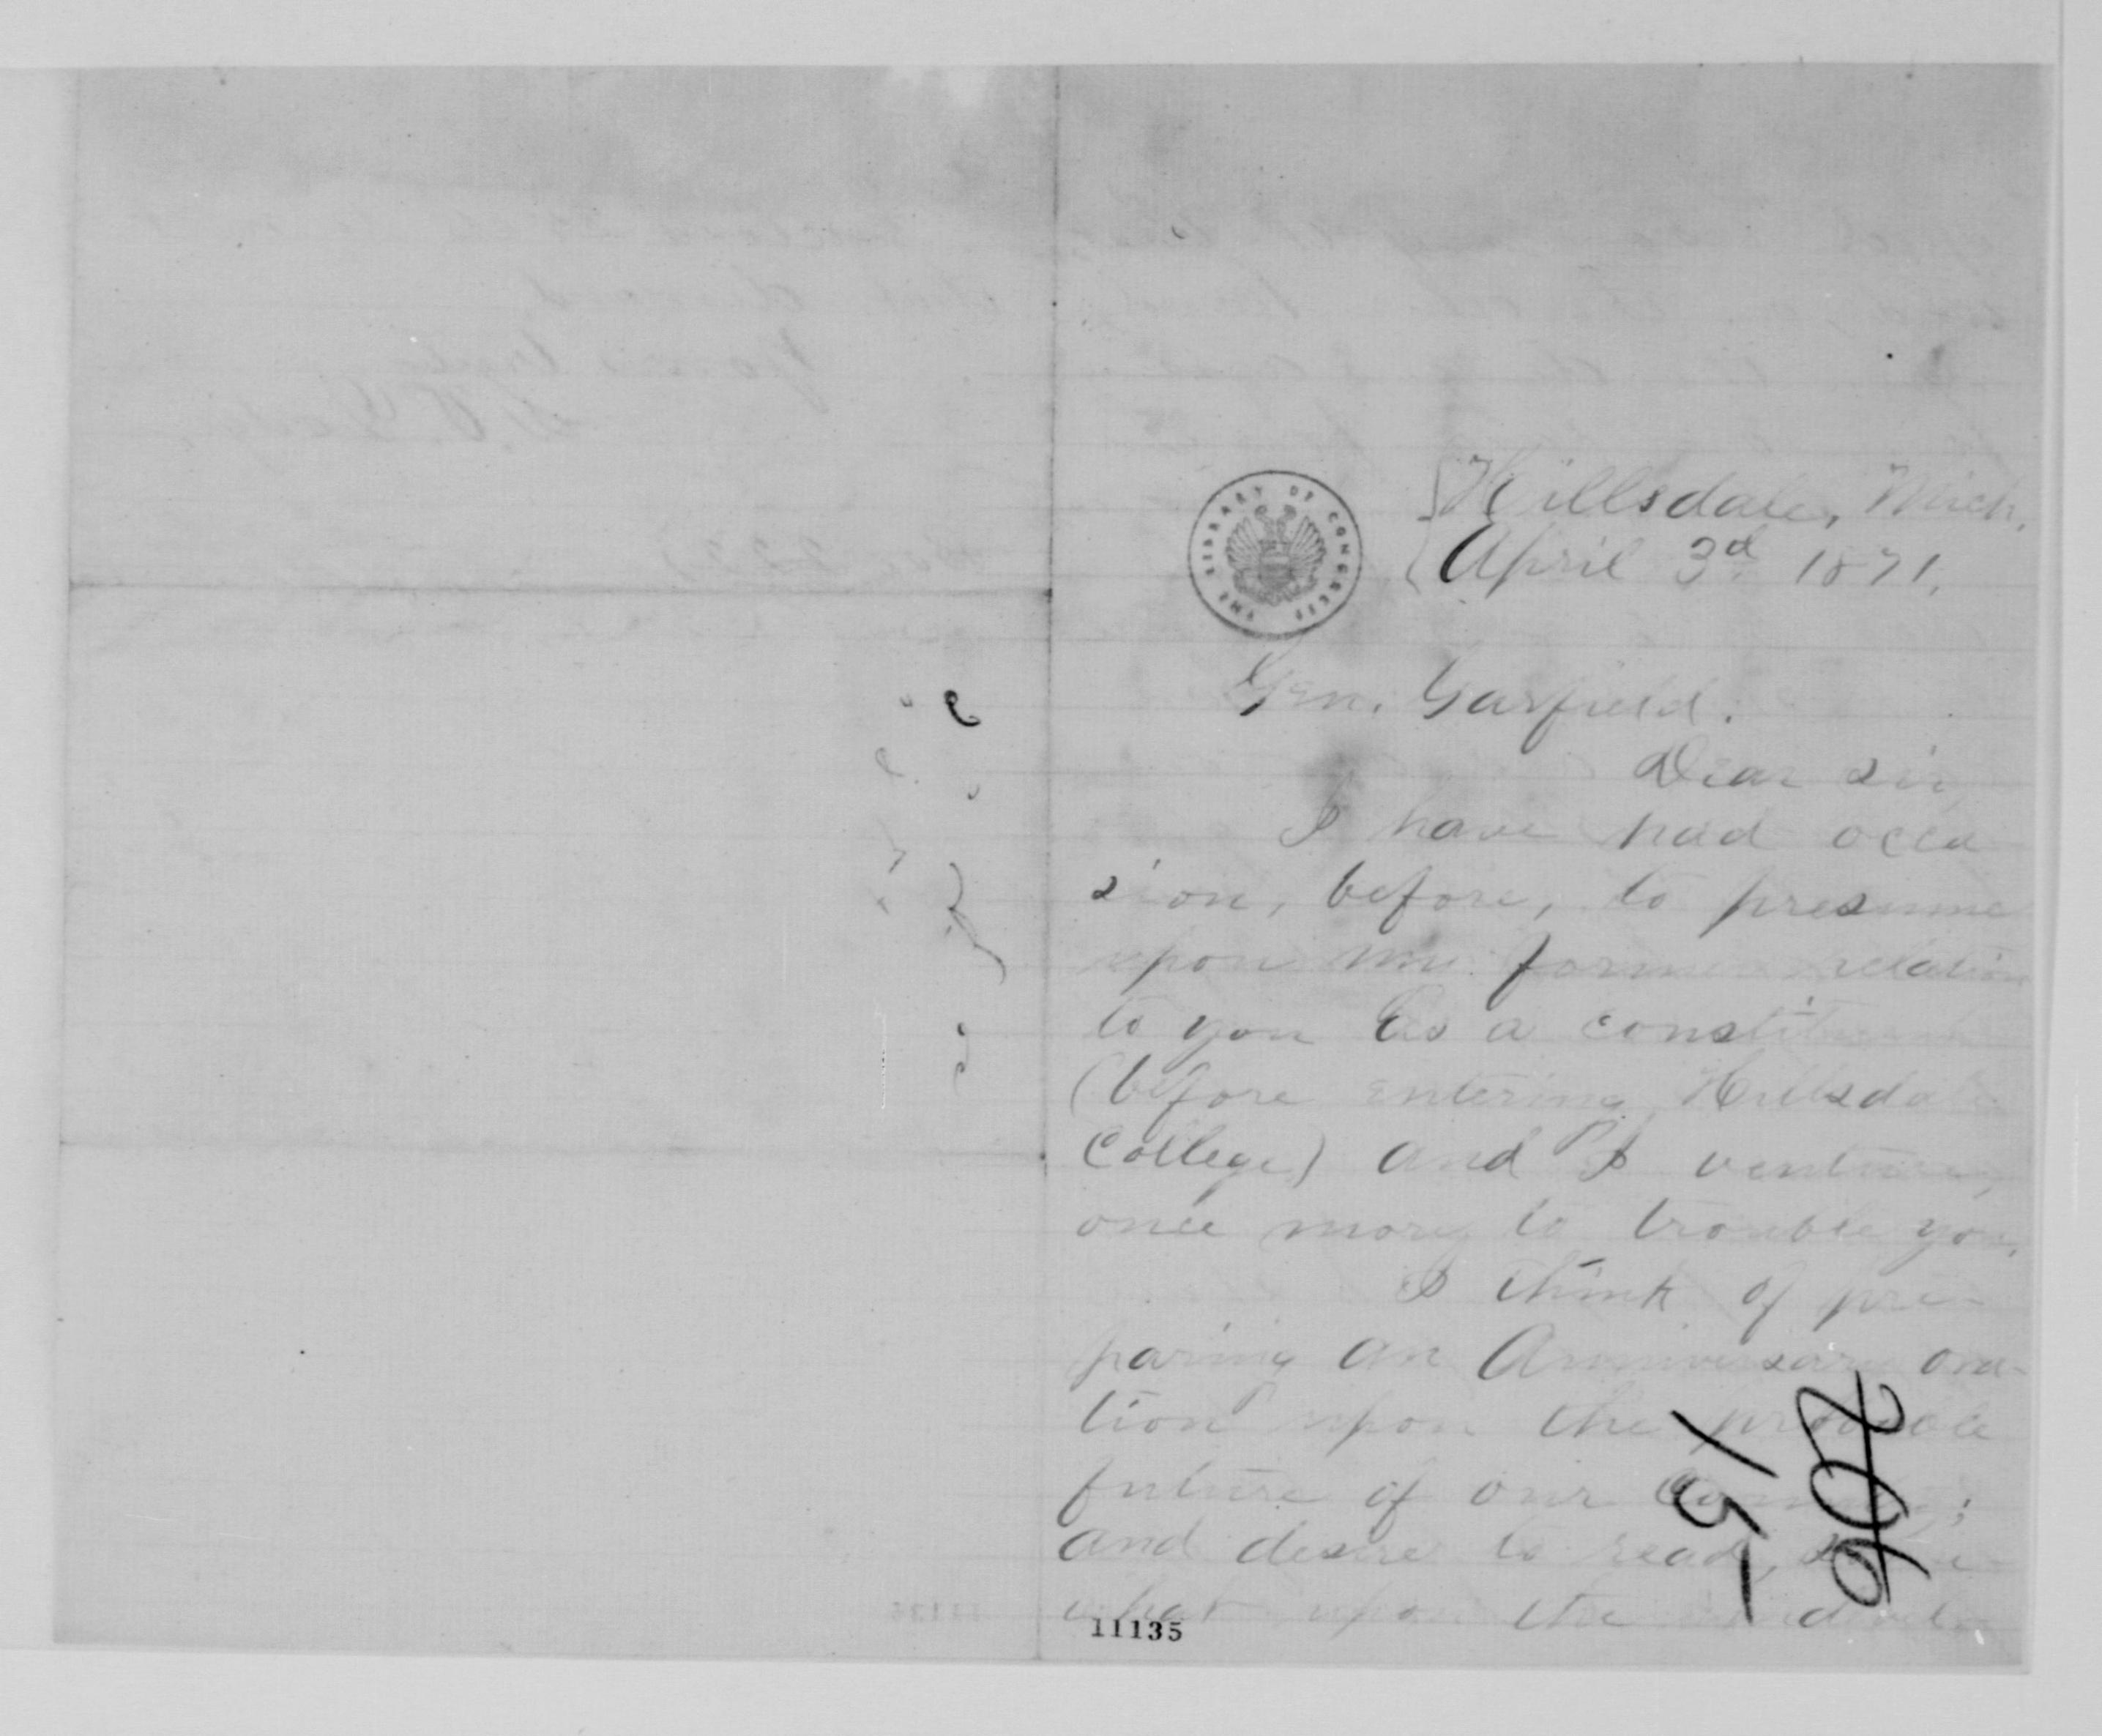 Hillsdale, Mich.
April 3d 1871.
THE LIBRARY OF CONGRESS
Gen. Garfield.
Dear sir,
I have had occa
sion, before, to presume
upon my former relation
to you as a constituent
(before entering Hillsdale
College) and I venture,
once more, to trouble you.
I think of pre-
paring an Anniversary ora-
tion upon the probable
future of our Country;
and desire to read, some-
what upon the
11135